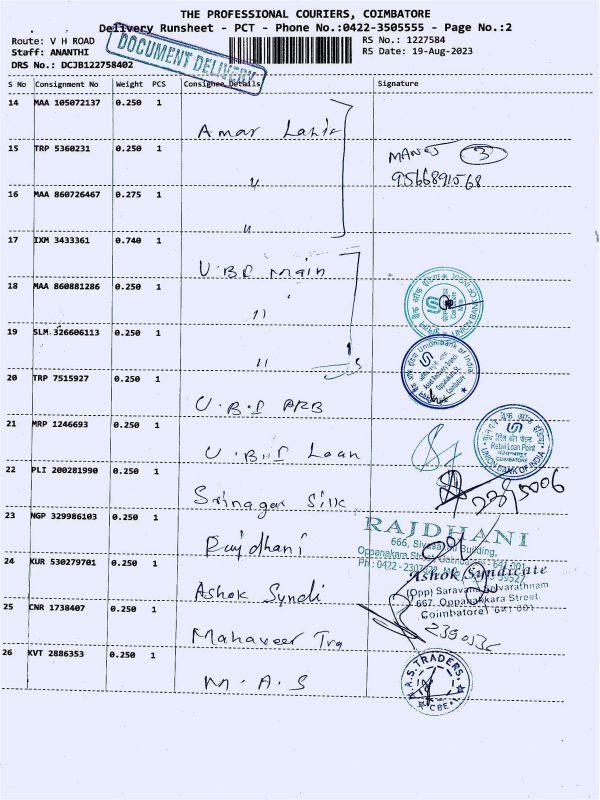 THE PROFESSIONAL COURIERS, COIMBATORE
Delivery Runsheet - PCT - Phone No.:0422-3505555 - Page No.:2
Route: V H ROAD
RS No.: 1227584
Staff: ANANTHI
RS Date: 19-Aug-2023
DRS No.: DCJB122758402
DOCUMENT DELIVERY
S No Consignment No Weight PCS Consignee Details Signature
14 MAA 105072137 0.250 1
Amar
15 TRP 5360231 0.250 1
3
9566891568
16 MAA 860726467 0.275 1
17 IXM 3433361 0.740 1
U.B.I Main
18 MAA 860881286 0.250 1
UNION BANK OF INDIA
19 SLM 326606113 0.250 1
Union bank of India
Coimbatore
20 TRP 7515927 0.250 1
U.B.I ARB
21 MRP 1246693 0.250 1
U.B.I Loan
Retail Loan Point
COIMBATORE
UNION BANK OF INDIA
22 PLI 200281990 0.250 1
Srinagar Silk
23 NGP 329986103 0.250 1
Rajdhani
RAJDHANI
666, Building,
Oppanakara Street, Coimbatore - 641 001
Ph : 0422 -
24 KUR 530279701 0.250 1
Ashok Syndi
Ashok Syndicate
(Opp) Saravana
667, Oppanakkara Street,
Coimbatore 641 001
25 CNR 1738407 0.250 1
Mahaveer Tra
26 KVT 2886353 0.250 1
M.A.S
M.A.S. TRADERS
CBE-1